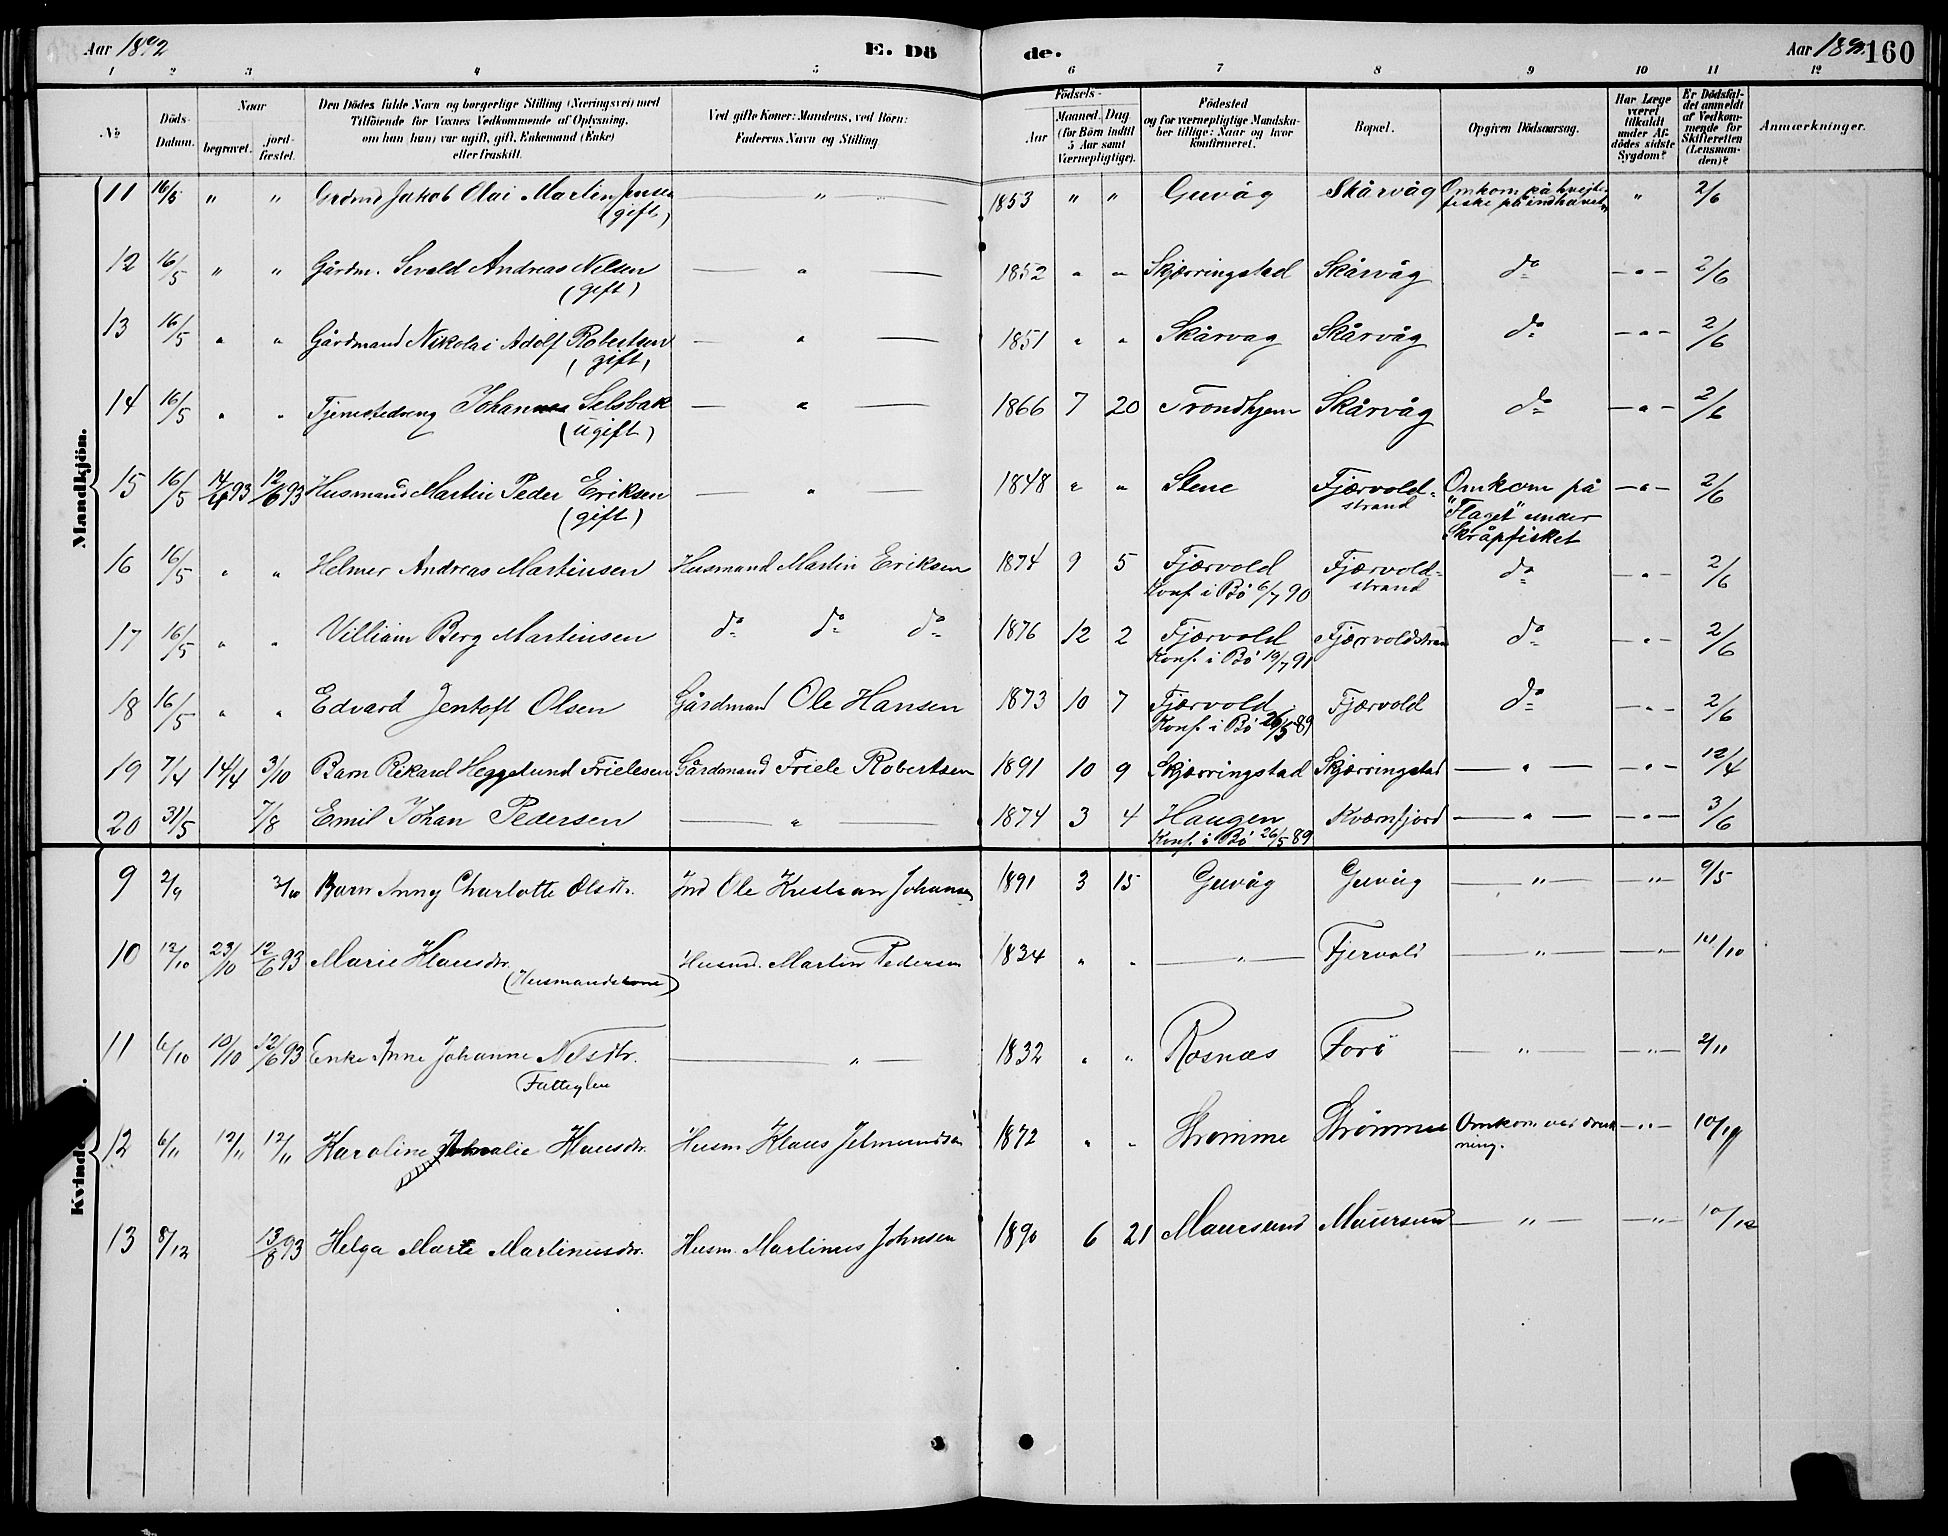 Aar 1892 E. Dö de. Aar 189 160
1 2 3 4 5 6 7 8 9 10 11 12
No Döds-Datum. Naar begravet. jord-fæstet. Den Dödes fulde Navn og borgerlige Stilling (Næringsvei) med Tilföiende for Voxnes Vedkommende af Oplysning, om han (hun) var ugift, gift, Enkemand (Enke) eller fraskilt. Ved gifte Koner: Mandens, ved Börn: Faderens Navn og Stilling Födsels- Aar Maaned. Dag (for Börn indtil 5 Aar samt Værnepligtige). Födested og for værnepligtige Mandskaber tillige: Naar og hvor konfirmeret. Bopæl. Opgiven Dödsaarsag. Har Læge været tilkaldt under Afdödes sidste Sygdom? Er Dödsfaldet anmeldt af Vedkommende for Skifteretten (Lensmanden)? Anmærkninger.
Mandkjön.
11 16/5 " " Grdmd Jakob Olai Martin Jensen (gift) — " — 1853 " " Guvåg Skårvåg Omkom på fiske på indhavet " 2/6
12 16/5 " " Gårdm. Sevald Andreas Nilsen (gift) — " — 1852 " " Skjørringstad Skårvåg do — " — 2/6
13 16/5 " " Gårdmand Nikolai Adolf Robertsen (gift) — " — 1851 " " Skårvag Skårvåg do — " — 2/6
14 16/5 " " Tjenestedreng Johannes Selsbak (ugift) — " — 1866 7 20 Trondhjem Skårvåg do — " — 2/6
15 16/5 14/4 93 12/6 93 Husmand Martin Peder Eriksen (gift) — " — 1848 " " Stene Fjærvold-strand Omkom på "Flaget" under Skråpfisket — " — 2/6
16 16/5 " " Helmer Andreas Martinsen Husmand Martin Eriksen 1874 9 5 Fjærvold Konf. i Bö 6/7 90 Fjærvold-strand do — " — 2/6
17 16/5 " " Villiam Berg Martinsen do do do 1876 12 2 Fjærvold Konf. i Bö 19/7 91 Fjærvoldstran do — " — 2/6
18 16/5 " " Edvard Jentoft Olsen Gårdmand Ole Hansen 1873 10 7 Fjærvold Konf. i Bö 26/5 89 Fjærvold do — " — 2/6
19 7/4 14/4 3/10 Barn Rikard Heggelund Frielesen Gårdmand Friele Robertsen 1891 10 9 Skjørringstad Skjørringstad — " — — " — 12/4
20 31/5 7/8 Emil Johan Pedersen — " — 1874 3 4 Haugen Konf. i Bö 26/5 89 Kværnfjord — " — — " — 3/6
Kvindek.
9 2/9 Barn Anny Charlotte Olsdtr. Ind Ole Kristian Johansen 1891 3 15 Guvåg Guvåg — " — — " — 9/5
10 12/10 23/10 12/6 93 Marie Klausdtr. (Husmandskone) Husmd. Martin Pedersen 1834 " " — " — Fjervold — " — — " — 14/10
11 6/10 10/10 12/6 93 Enke Anne Johanne Nilsdtr. Fattiglem — " — 1832 " " Rosnæs Forö — " — — " — 2/11
12 6/11 12/11 12/11 Karoline Amalie Klausdtr. Husm. Klaus Jelmundsen 1872 " " Strømme Strømme Omkom ved drukning. — " — 10/11
13 8/12 13/8 93 Helga Marie Martinusdtr. Husm. Martinus Johnsen 1890 6 21 Maursund Maursund — " — — " — 10/12